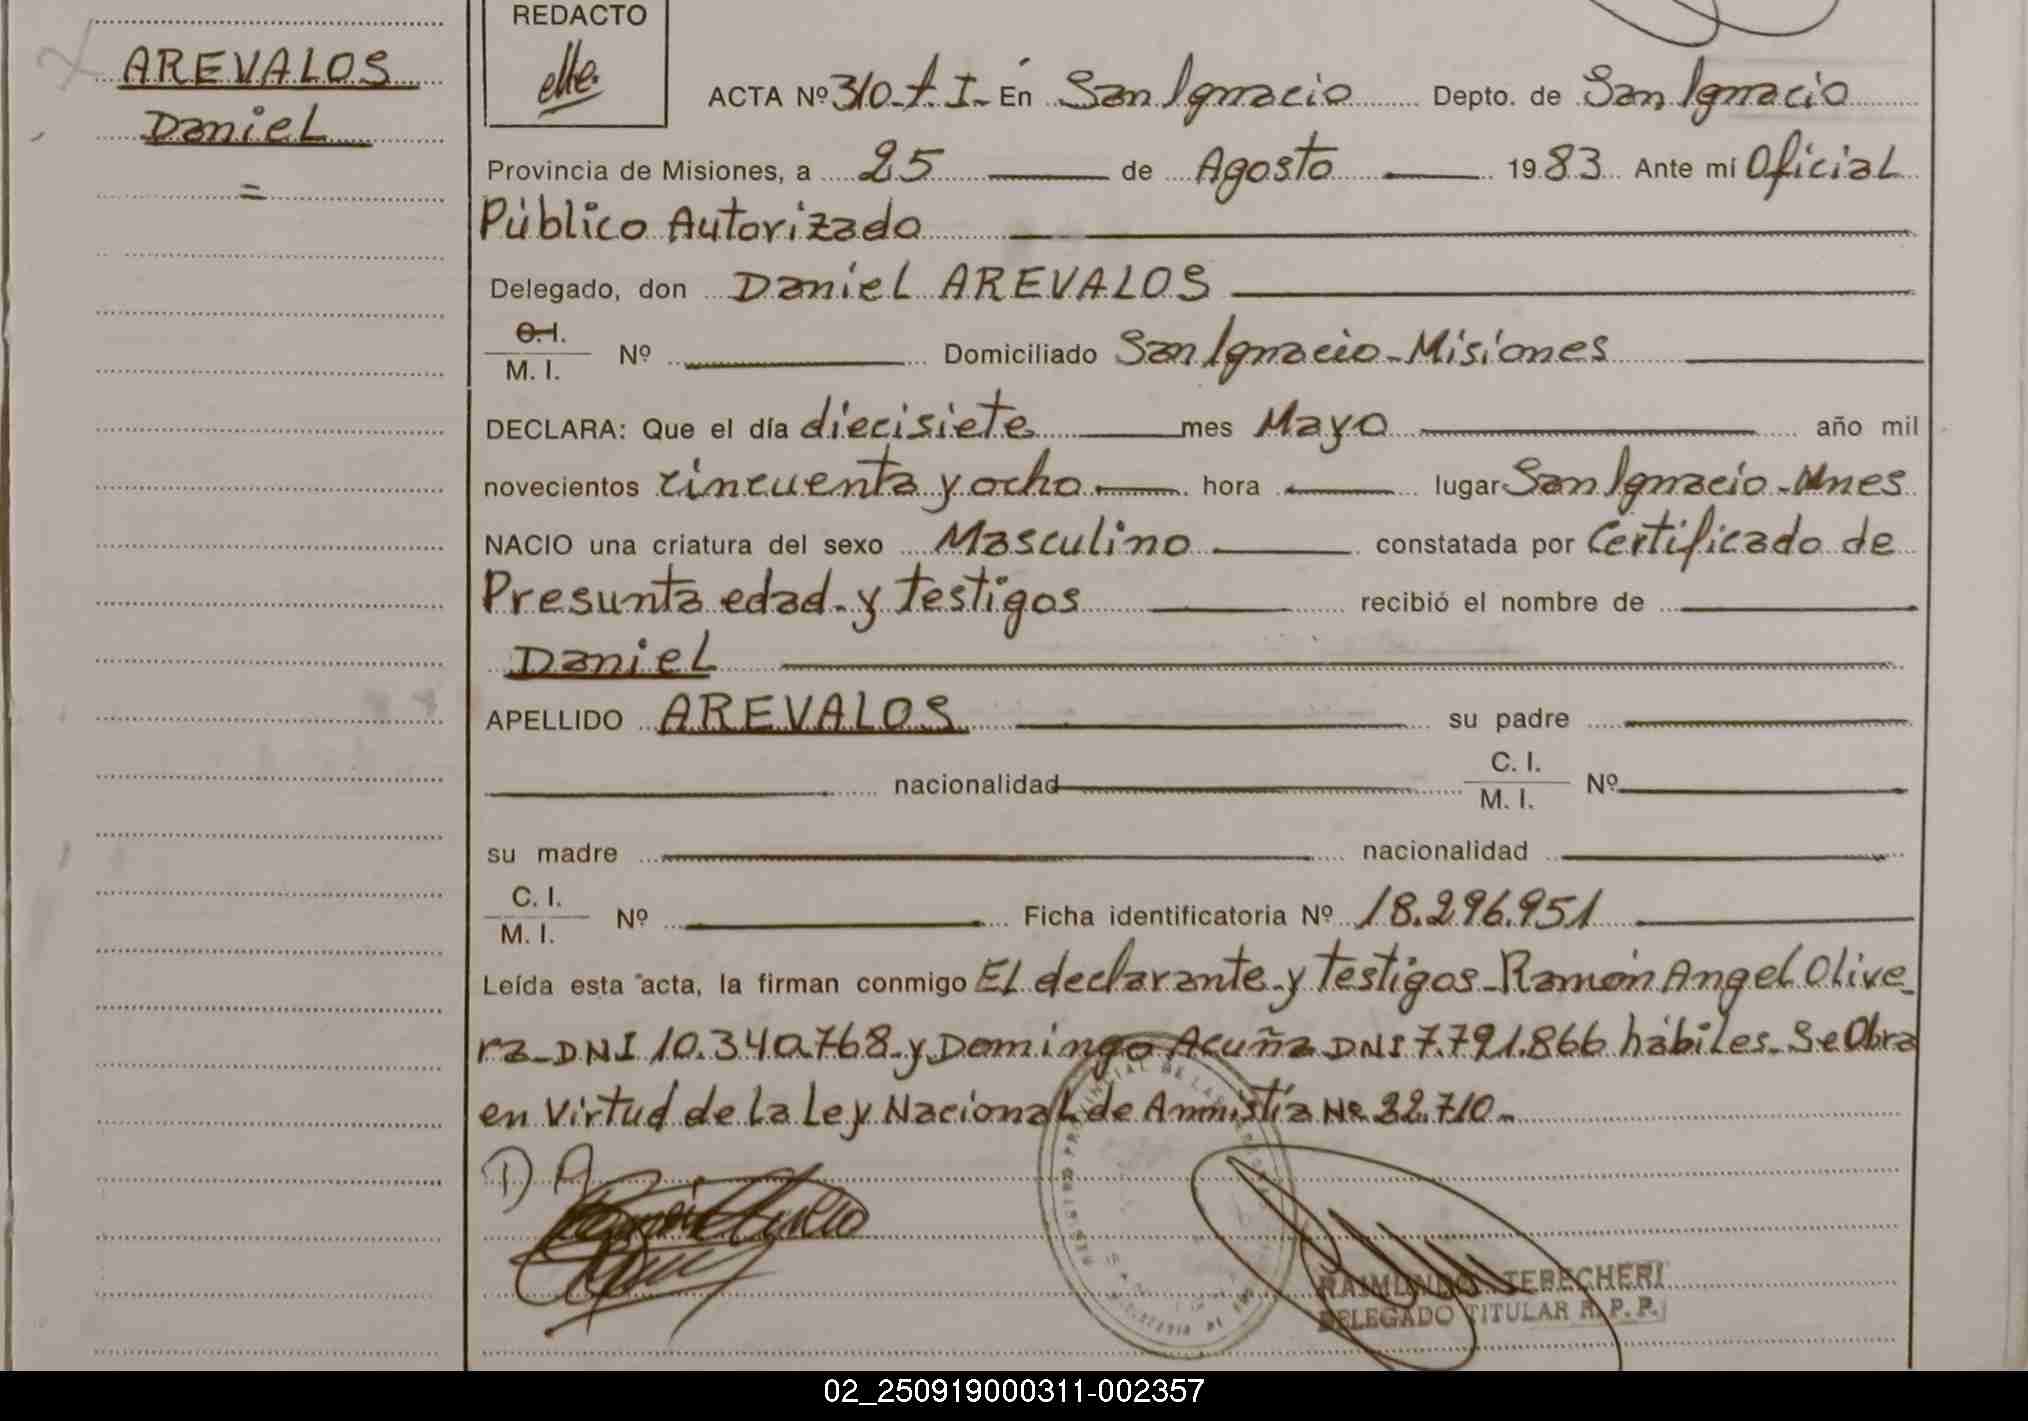 AREVALOS
Daniel
=
REDACTO
ACTA Nº 310-t. I- En San Ignacio Depto. de San Ignacio
Provincia de Misiones, a 25 de Agosto 1983 Ante mí Oficial
Público Autorizado
Delegado, don Daniel AREVALOS
C. I.
M. I. Nº Domiciliado San Ignacio - Misiones
DECLARA: Que el día diecisiete mes Mayo año mil
novecientos cincuenta y ocho hora lugar San Ignacio - Mnes
NACIO una criatura del sexo Masculino constatada por Certificado de
Presunta edad - y testigos recibió el nombre de
Daniel
APELLIDO AREVALOS su padre
nacionalidad C. I.
M. I. Nº
su madre nacionalidad
C. I.
M. I. Nº Ficha identificatoria Nº 18.296.951
Leída esta acta, la firman conmigo El declarante - y testigos - Ramón Angel Olive-
ra - DNI 10.340.768 - y Domingo Acuña DNI 7.791.866 hábiles - Se Obra
en Virtud de la Ley Nacional de Amnistía Nº 22.710 -
D A
RAIMUNDO TEBECHERI
DELEGADO TITULAR R. P. P.
02_250919000311-002357